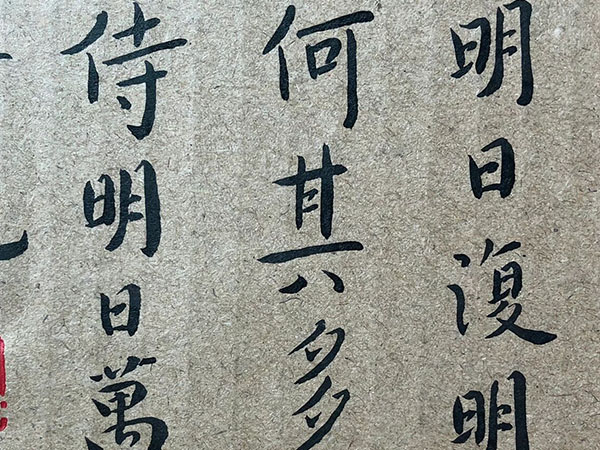 明日復明
何其多
侍明日萬